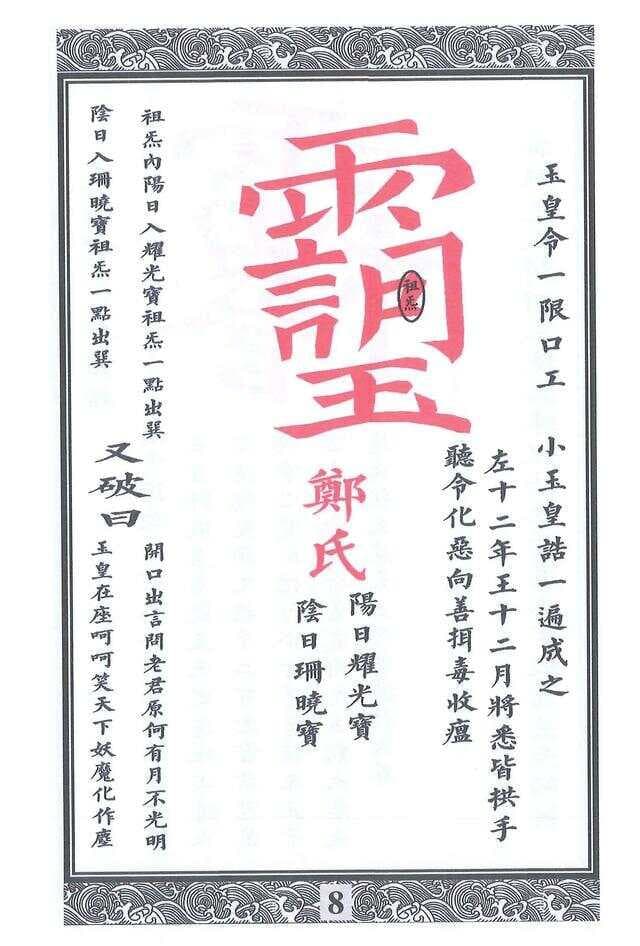 玉皇令一限口工
小玉皇誥一遍成之
左十二年王十二月將悉皆拱手
聽令化惡向善挕毒收瘟
祖炁
鄭氏
陽日耀光寶
陰日珊曉寶
祖炁內陽日入耀光寶祖炁一點出巽
陰日入珊曉寶祖炁一點出巽
又破曰
開口出言問老君原何有月不光明
玉皇在座呵呵笑天下妖魔化作塵
8